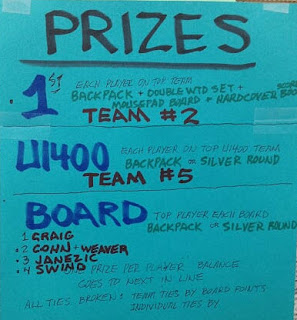 PRIZES
1ST EACH PLAYER ON TOP TEAM
BACKPACK + DOUBLE WTD SET +
MOUSEPAD BOARD or HARDCOVER
TEAM #2
U1400 EACH PLAYER ON TOP U1400 TEAM
BACKPACK or SILVER ROUND
TEAM #5
BOARD TOP PLAYER EACH BOARD
BACKPACK or SILVER ROUND
1 GRAIG
2 CONN + WEAVER
3 JANEZIC
4 SWINO
PRIZE PER PLAYER BALANCE
GOES TO NEXT IN LINE
ALL TIES BROKEN: TEAM TIES BY BOARD POINTS
INDIVIDUAL TIES BY